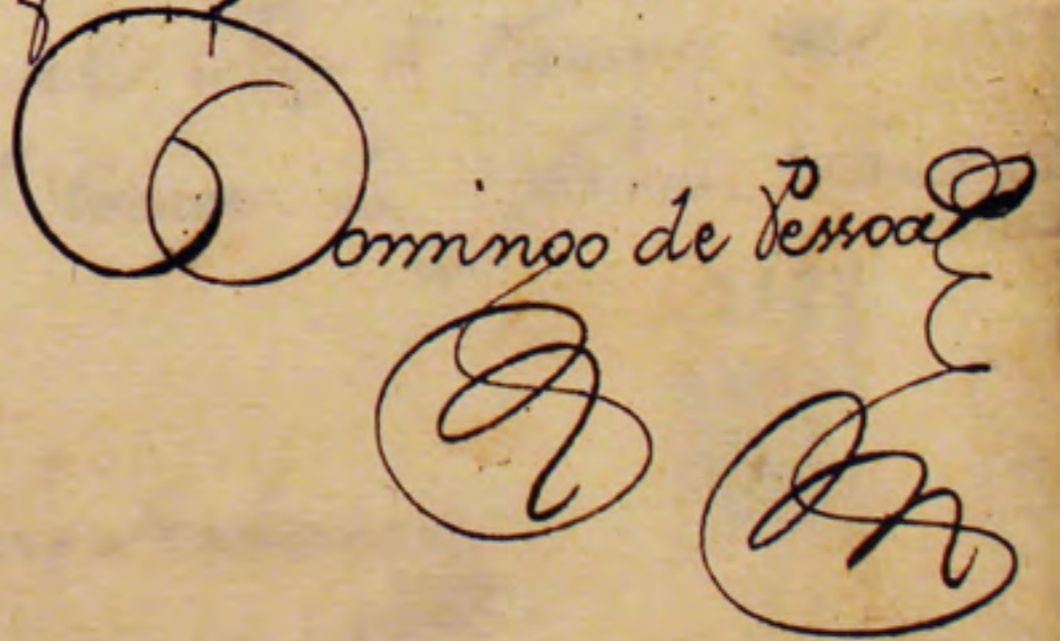 Domingo de Pessoa